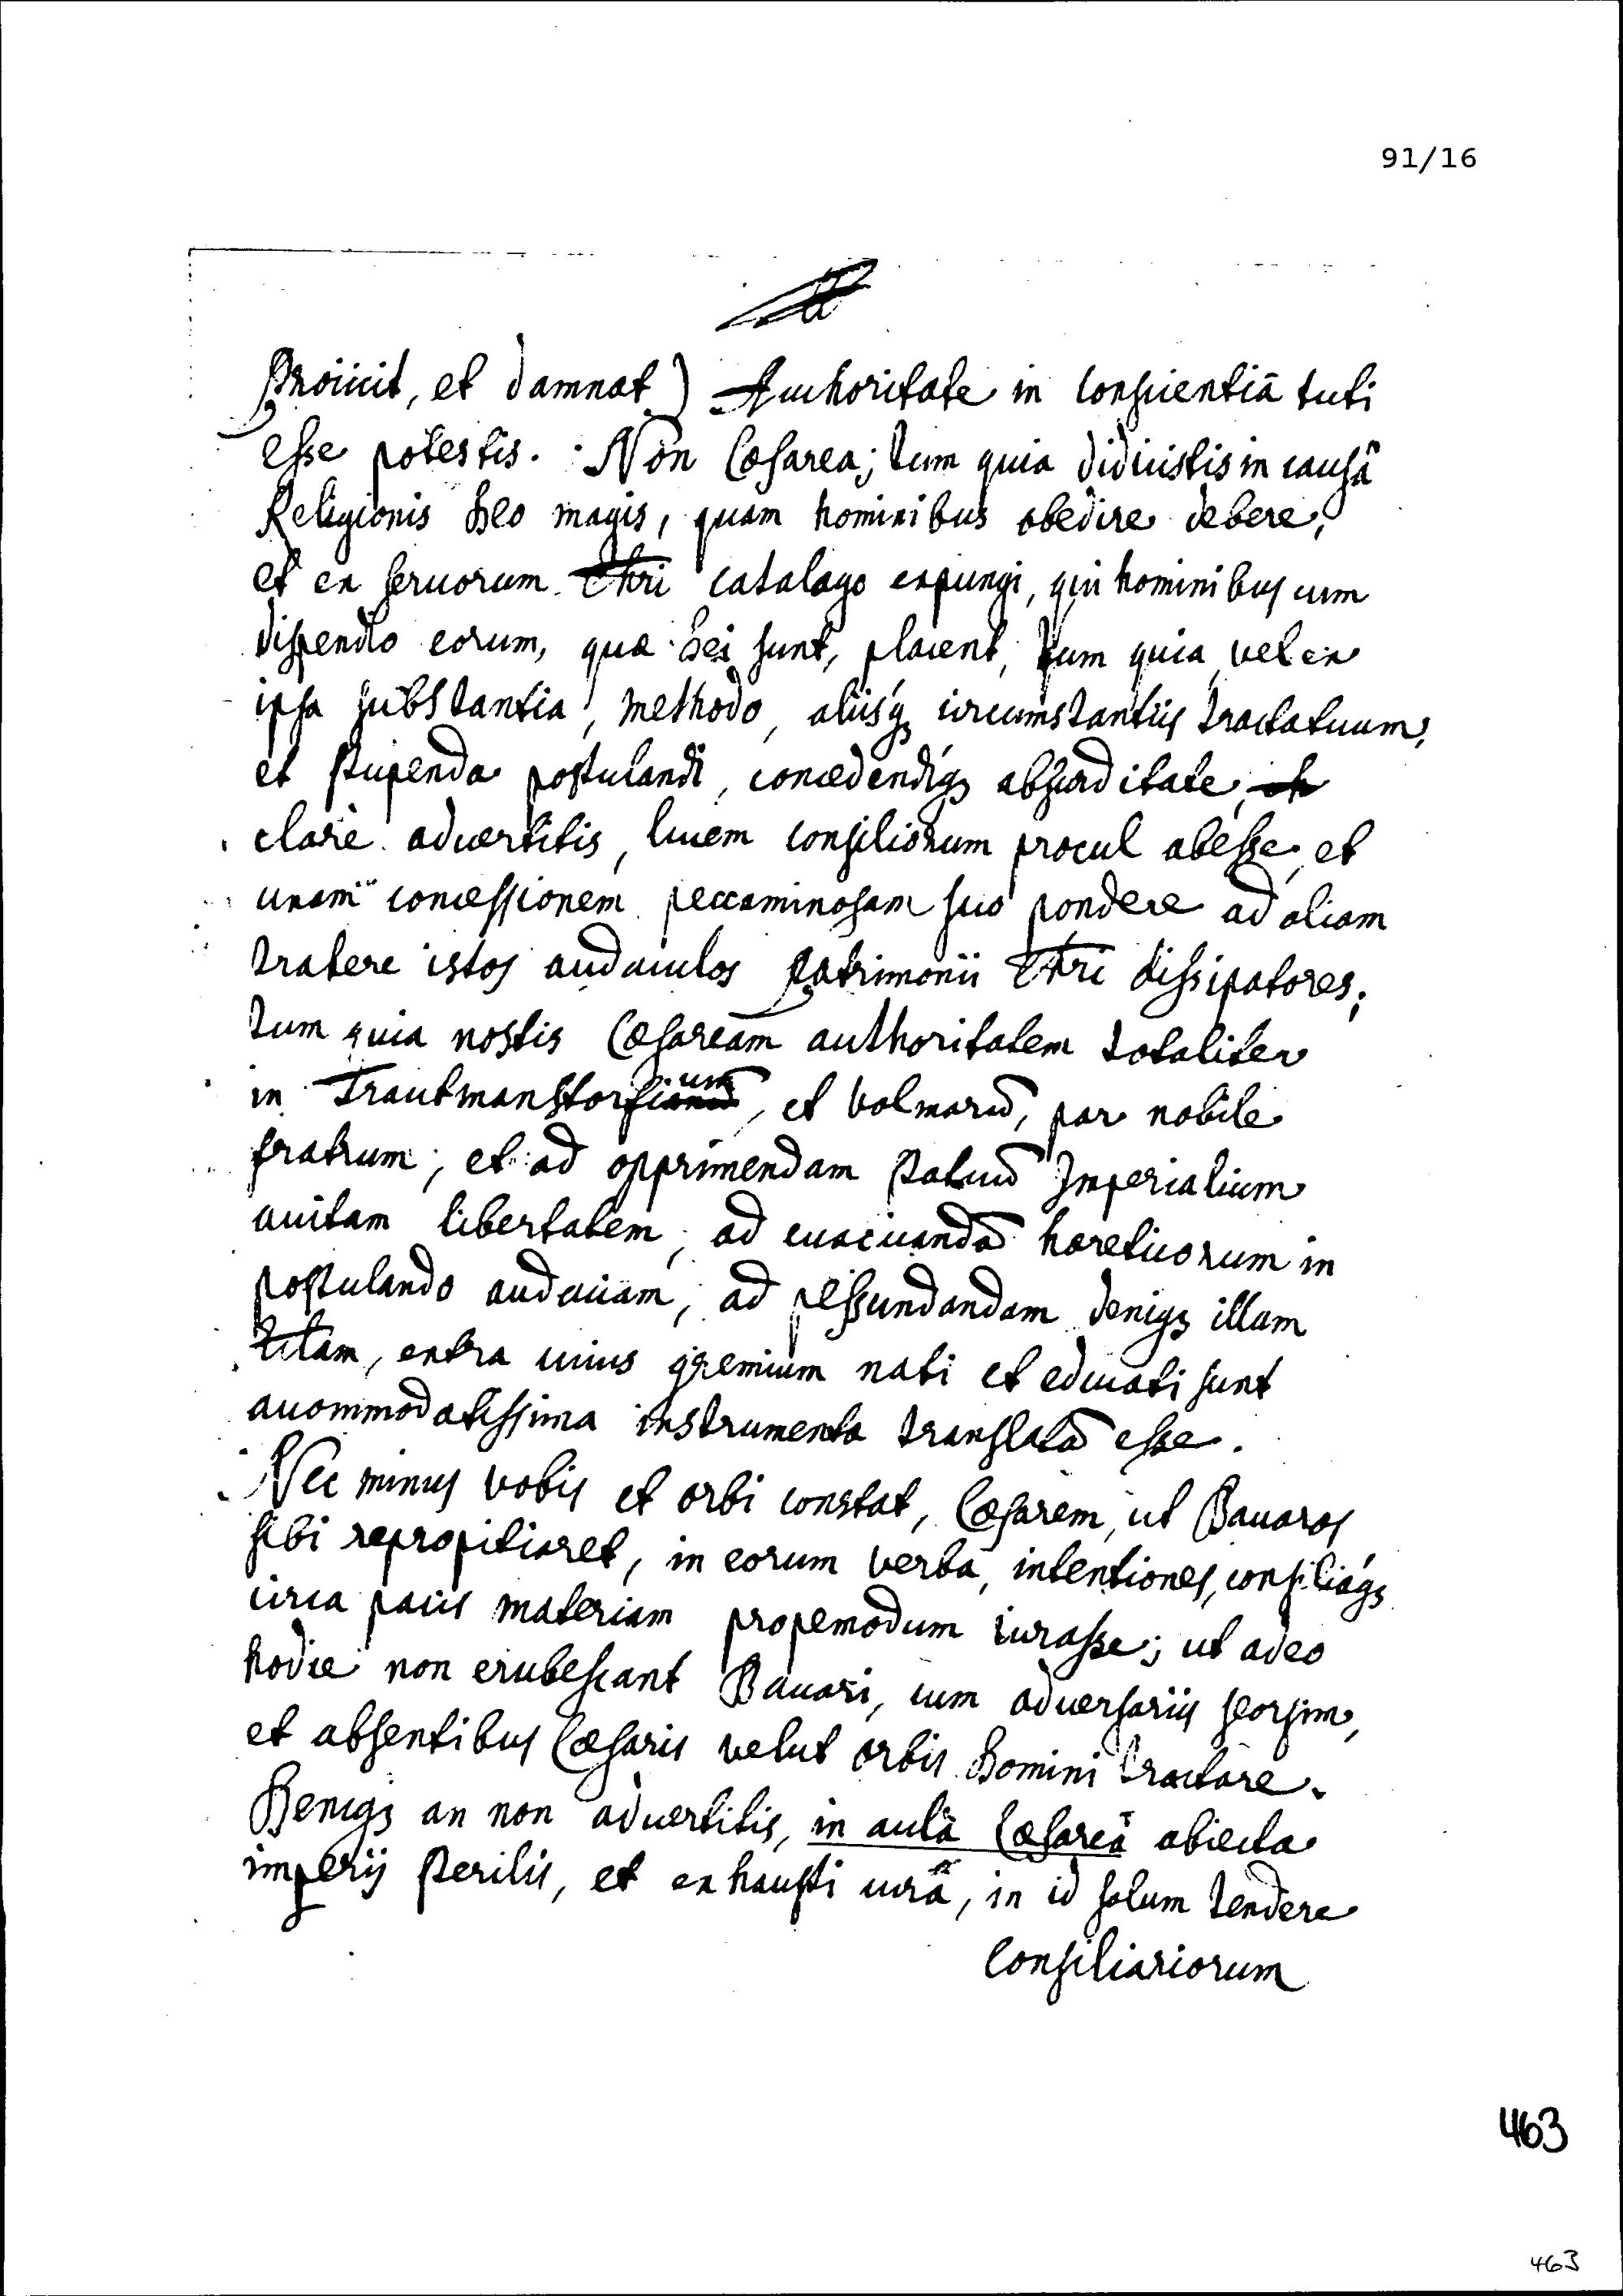 91/16
Proiicit, et damnat) Authoritate in conscientiâ tuti
esse potestis. Non Cæsarea; tum quia didicistis in causâ
Religionis Deo magis, quam hominibus obedire debere,
et ex servorum Chri catalago expungi, qui hominibus cum
dispendio eorum, quæ Dei sunt, placent, tum quia vel ex
ipsa substantia, methodo, aliisq; circumstantiis tractatuum,
et stupenda postulandi, concedendiq; absurditate,
clarè advertitis, lucem consiliorum procul abesse, et
unam concessionem peccaminosam suo pondere ad aliam
trahere istos audaculos patrimonii Chri dissipatores;
tum quia nostis Cæsaream authoritatem totaliter
in Trautmanstorfium, et Volmarũ, par nobile
fratrum; et ad opprimendam Statuũ Imperialium
avitam libertatem, ad evacuandã hæreticorum in
postulando audaciam, ad pessundandam deniq; illam
extra cuius gremium nati et educati sunt
accommodatissima instrumenta translatã esse.
Nec minus vobis et orbi constat, Cæsarem, ut Bavaros
sibi repropitiaret, in eorum verba, intentiones, consiliáq;
circa pacis materiam propemodum iurasse; ut adeo
hodie non erubescant Bavari, cum adversariis seorsim,
et absentibus Cæsaris velut orbis Domini tractare.
Deniq; an non advertitis, in aulâ Cæsareâ abiecta
imperij sterilis, et exhausti curâ, in id solum tendere
Consiliariorum
463
463